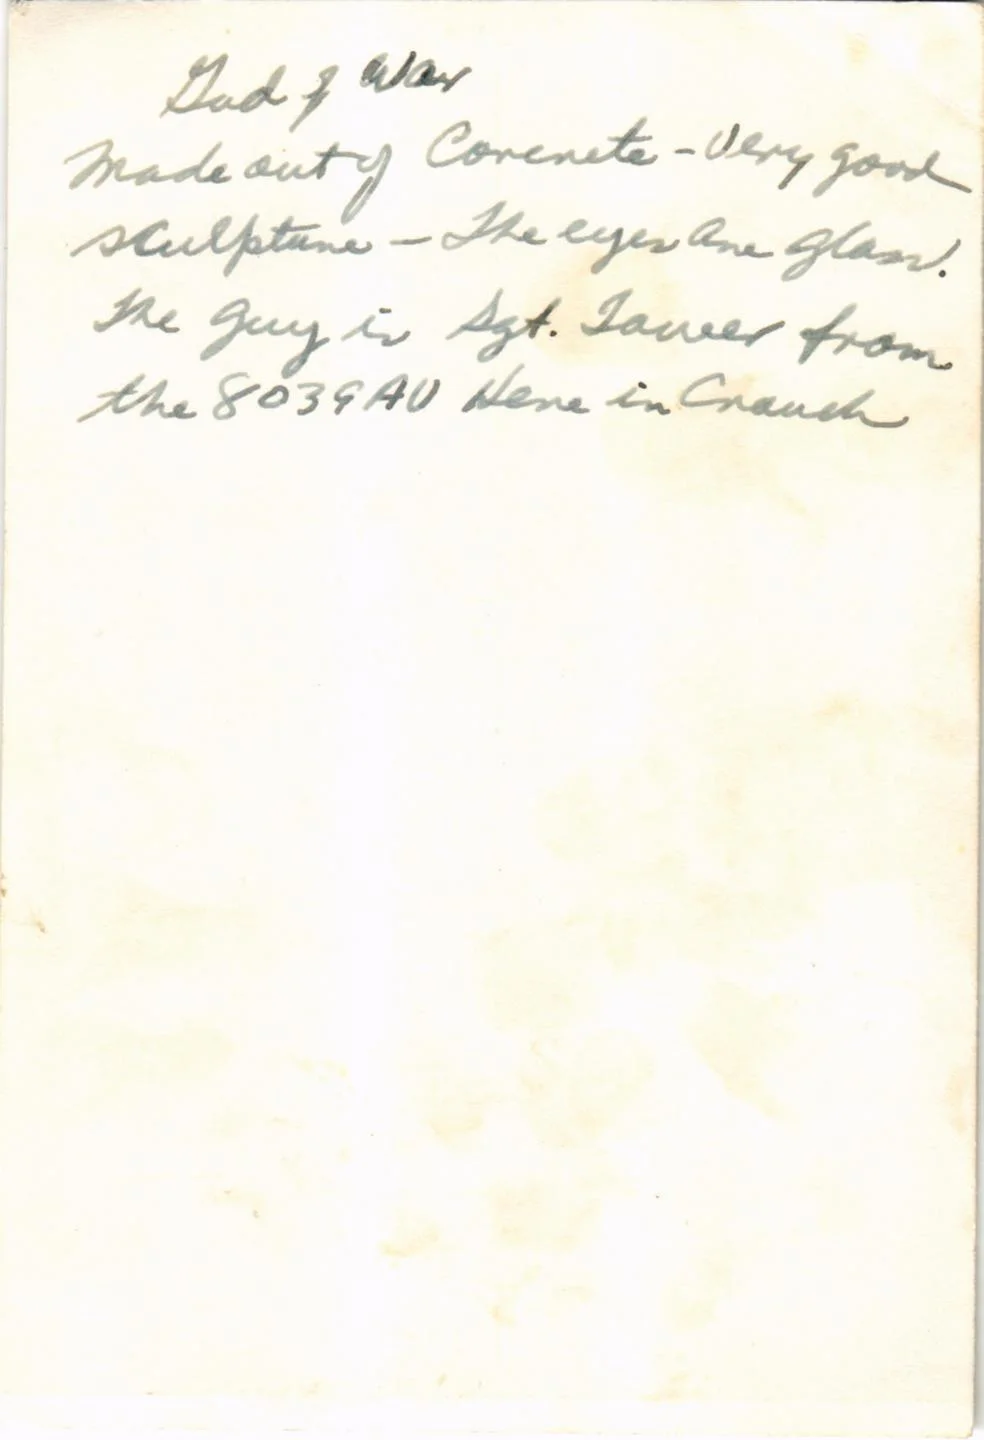 God of War
Made out of Concrete - Very good
sculpture - The eyes are glass.
The guy is Sgt. Tower from
the 8039 AU Here in Crouch